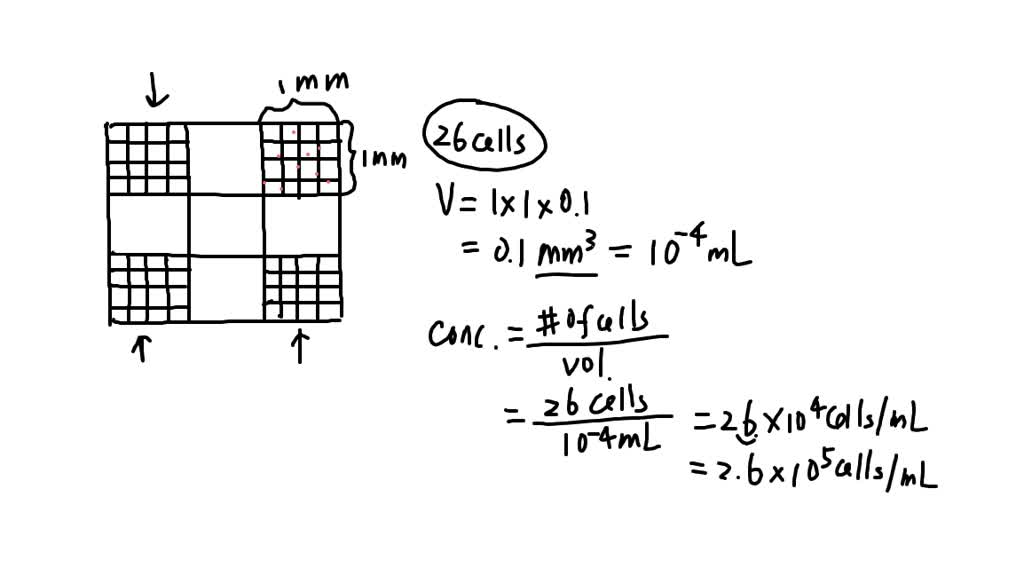 1 mm
1 mm
26 cells
V = 1 x 1 x 0.1
= 0.1 mm³ = 10⁻⁴ mL
conc. = # of cells / vol.
= 26 cells / 10⁻⁴ mL = 26. x 10⁴ cells/mL
= 2.6 x 10⁵ cells/mL